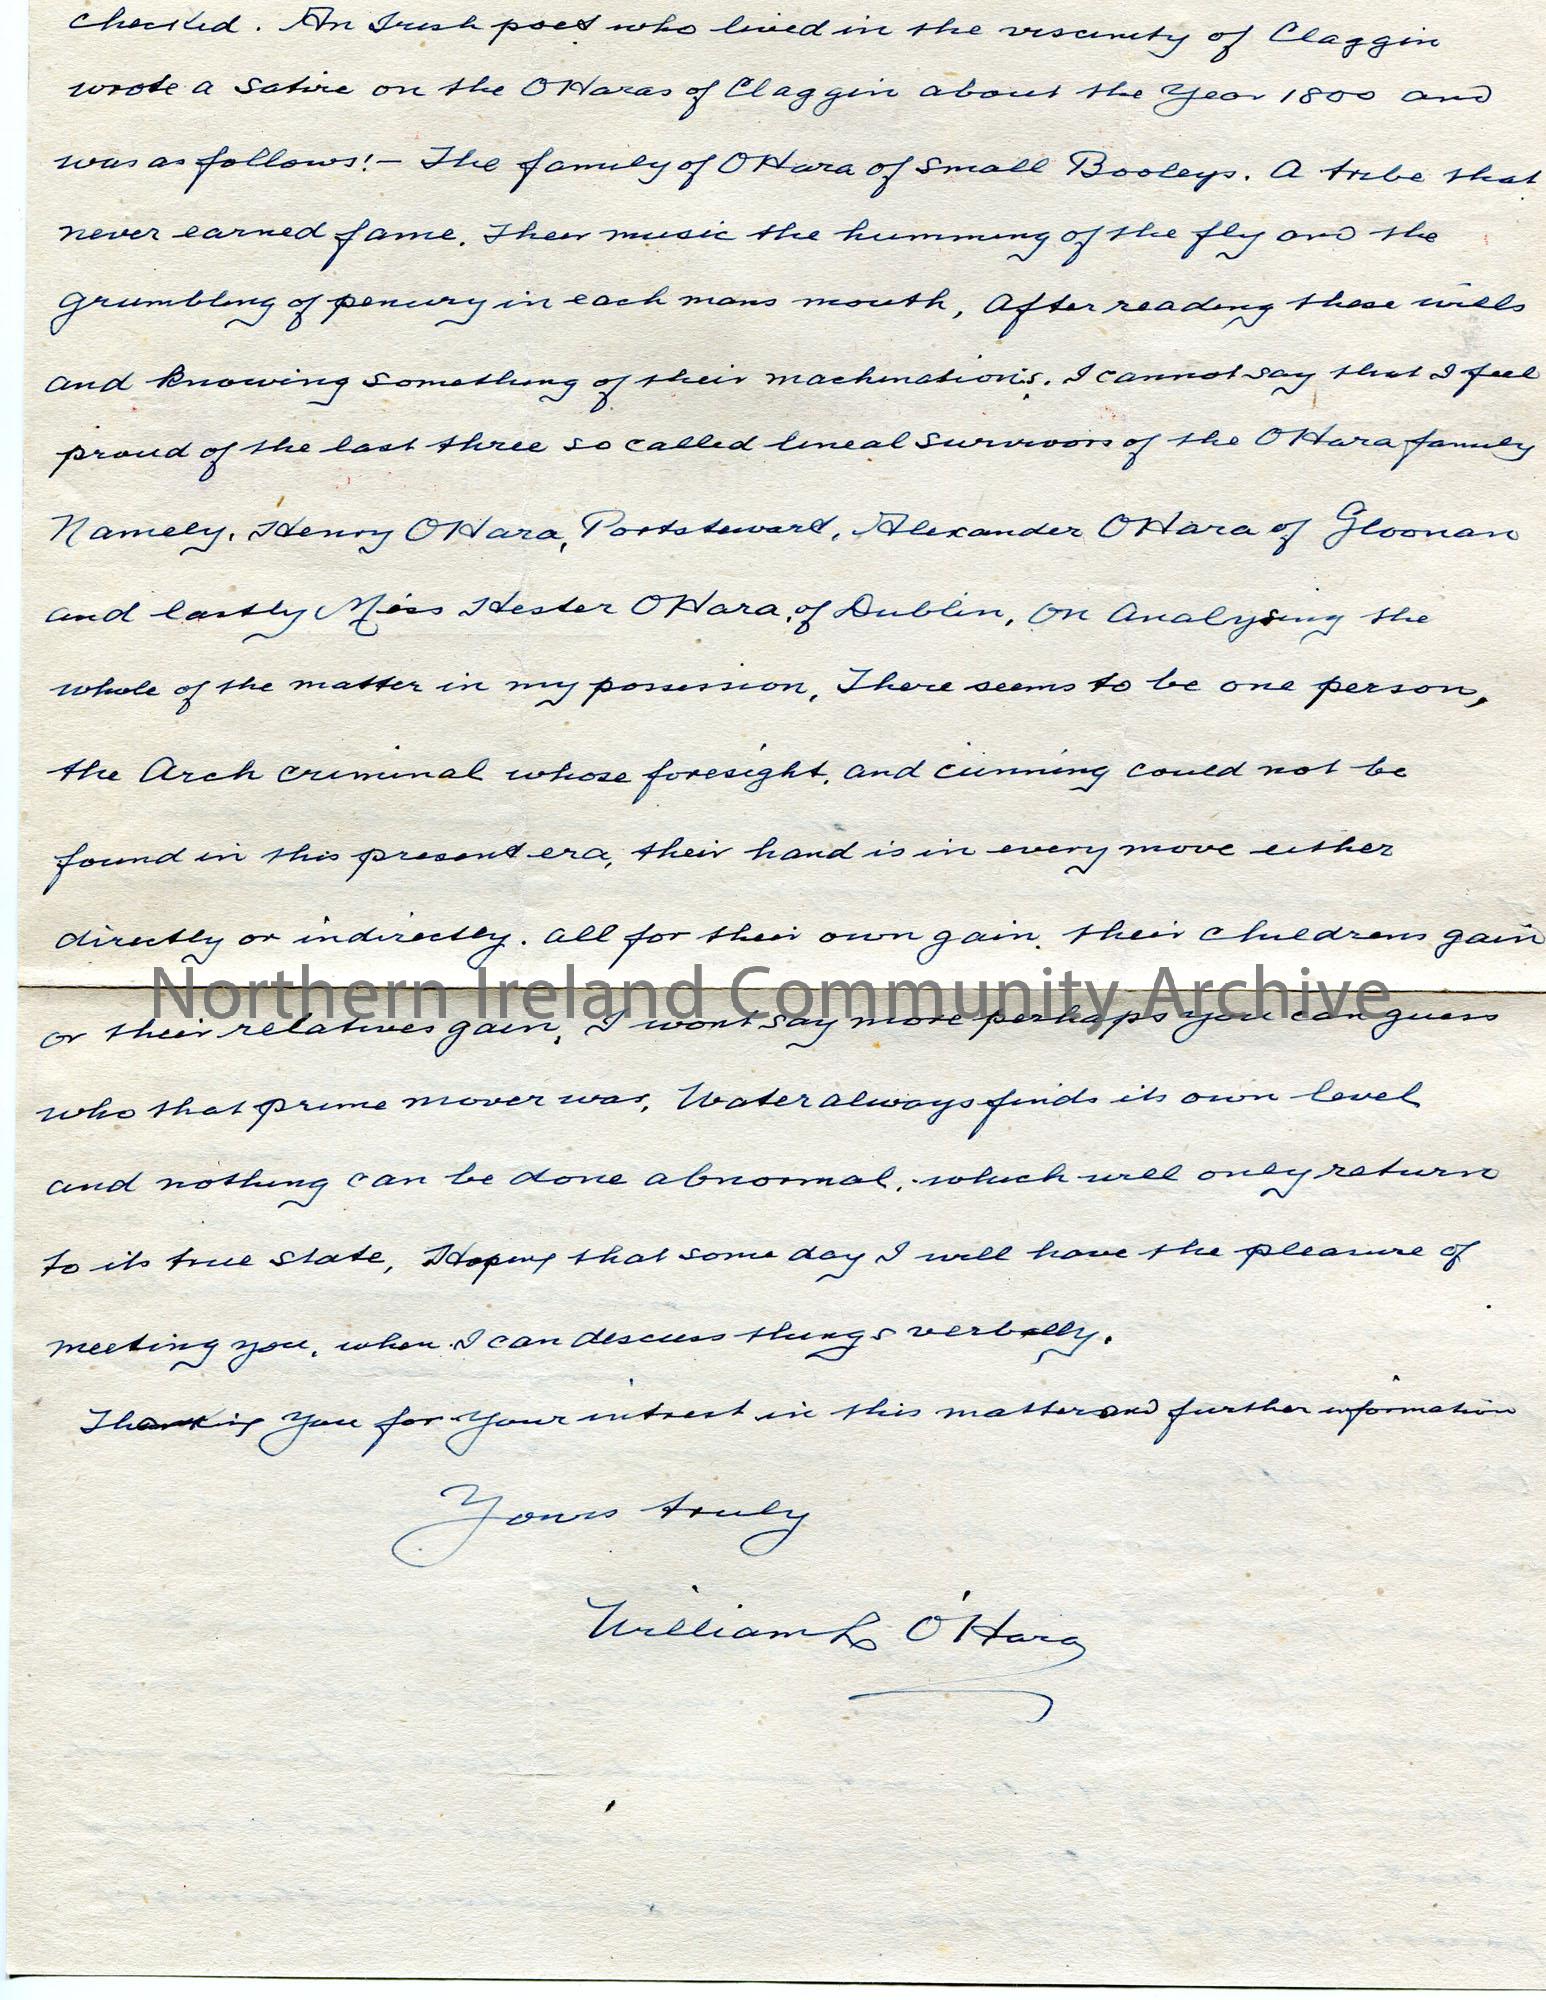 checked. An Irish poet who lived in the viscinity of Claggin
wrote a Satire on the OHaras of Claggin about the Year 1800 and
was as follows!- The family of OHara of small Booleys. A tribe that
never earned fame. Their music the humming of the fly and the
grumbling of penury in each mans mouth, After reading these wills
and knowing something of their machinations. I cannot say that I feel
proud of the last three so called lineal survivors of the OHara family
Namely. Henry OHara, Portstewart, Alexander OHara of Gloonan
and lastly Miss Hester OHara, of Dublin, On Analysing the
whole of the matter in my possession, There seems to be one person,
the Arch criminal whose foresight, and cunning could not be
found in this present era, their hand is in every move either
directly or indirectly. All for their own gain. their childrens gain
Northern Ireland Community Archive
or their relatives gain, I wont say more perhaps you can guess
who that prime mover was, Water always finds its own level
and nothing can be done abnormal, which will only return
to its true state, Hoping that some day I will have the pleasure of
meeting you, when I can discuss things verbally.
Thanking You for Your intrest in this matter and further information
Yours truly
William L O'Hara